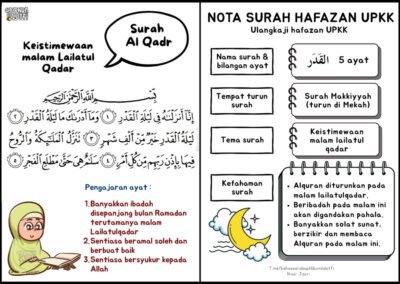 Surah
Al Qadr
Keistimewaan
malam Lailatul
Qadar
بِسْــــمِ اللَّهِ الرَّحْمَنِ الرَّحِيمِ
إِنَّا أَنزَلْنَاهُ فِي لَيْلَةِ الْقَدْرِ ۝١ وَمَا أَدْرَاكَ مَا لَيْلَةُ الْقَدْرِ ۝٢
لَيْلَةُ الْقَدْرِ خَيْرٌ مِّنْ أَلْفِ شَهْرٍ ۝٣ تَنَزَّلُ الْمَلَائِكَةُ وَالرُّوحُ
فِيهَا بِإِذْنِ رَبِّهِم مِّن كُلِّ أَمْرٍ ۝٤ سَلَامٌ هِيَ حَتَّىٰ مَطْلَعِ الْفَجْرِ ۝٥
Pengajaran ayat :
1.Banyakkan ibadah
disepanjang bulan Ramadan
terutamanya malam
Lailatulqadar
2.Sentiasa beramal soleh dan
berbuat baik
3.Sentiasa bersyukur kepada
Allah
NOTA SURAH HAFAZAN UPKK
Ulangkaji hafazan UPKK
Nama surah &
bilangan ayat
القَدَر 5 ayat
Tempat turun
surah
Surah Makkiyyah
(turun di Mekah)
Tema surah
Keistimewaan
malam lailatul
qadar
Kefahaman
surah
• Alquran diturunkan pada
malam lailatulqadar.
• Beribadah pada malam ini
akan digandakan pahala.
• Banyakkan solat sunat,
berzikir dan membaca
Alquran pada malam ini.